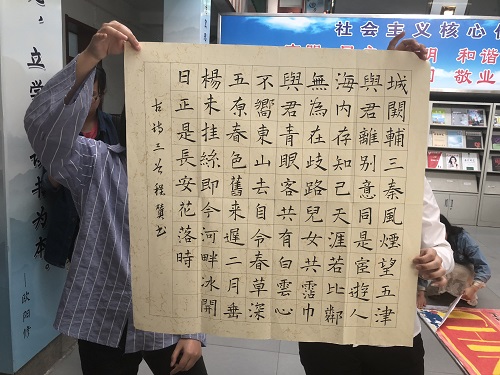 社会主义核心
明 和谐
敬业
立学
为本
——欧阳修
城闕輔三秦風煙望五津
與君離别意同是宦遊人
海内存知己天涯若比鄰
無為在歧路兒女共霑巾
與君青眼客共有白雲心
不嚮東山去自令春草深
五原春色舊来遲二月垂
楊未挂絲即今河畔冰開
日正是長安花落時
古诗三首 程书